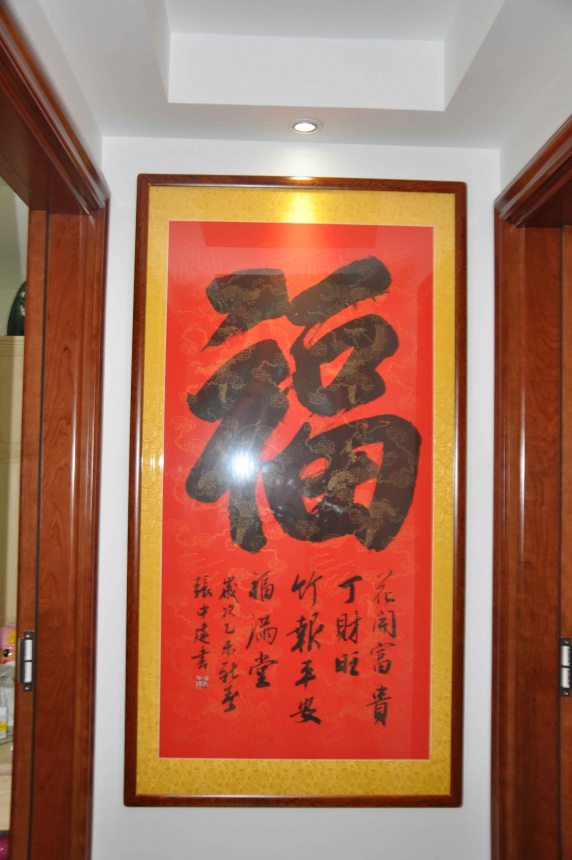 福
花開富貴
丁財旺
竹報平安
福滿堂
歲次乙未新春
張中建書